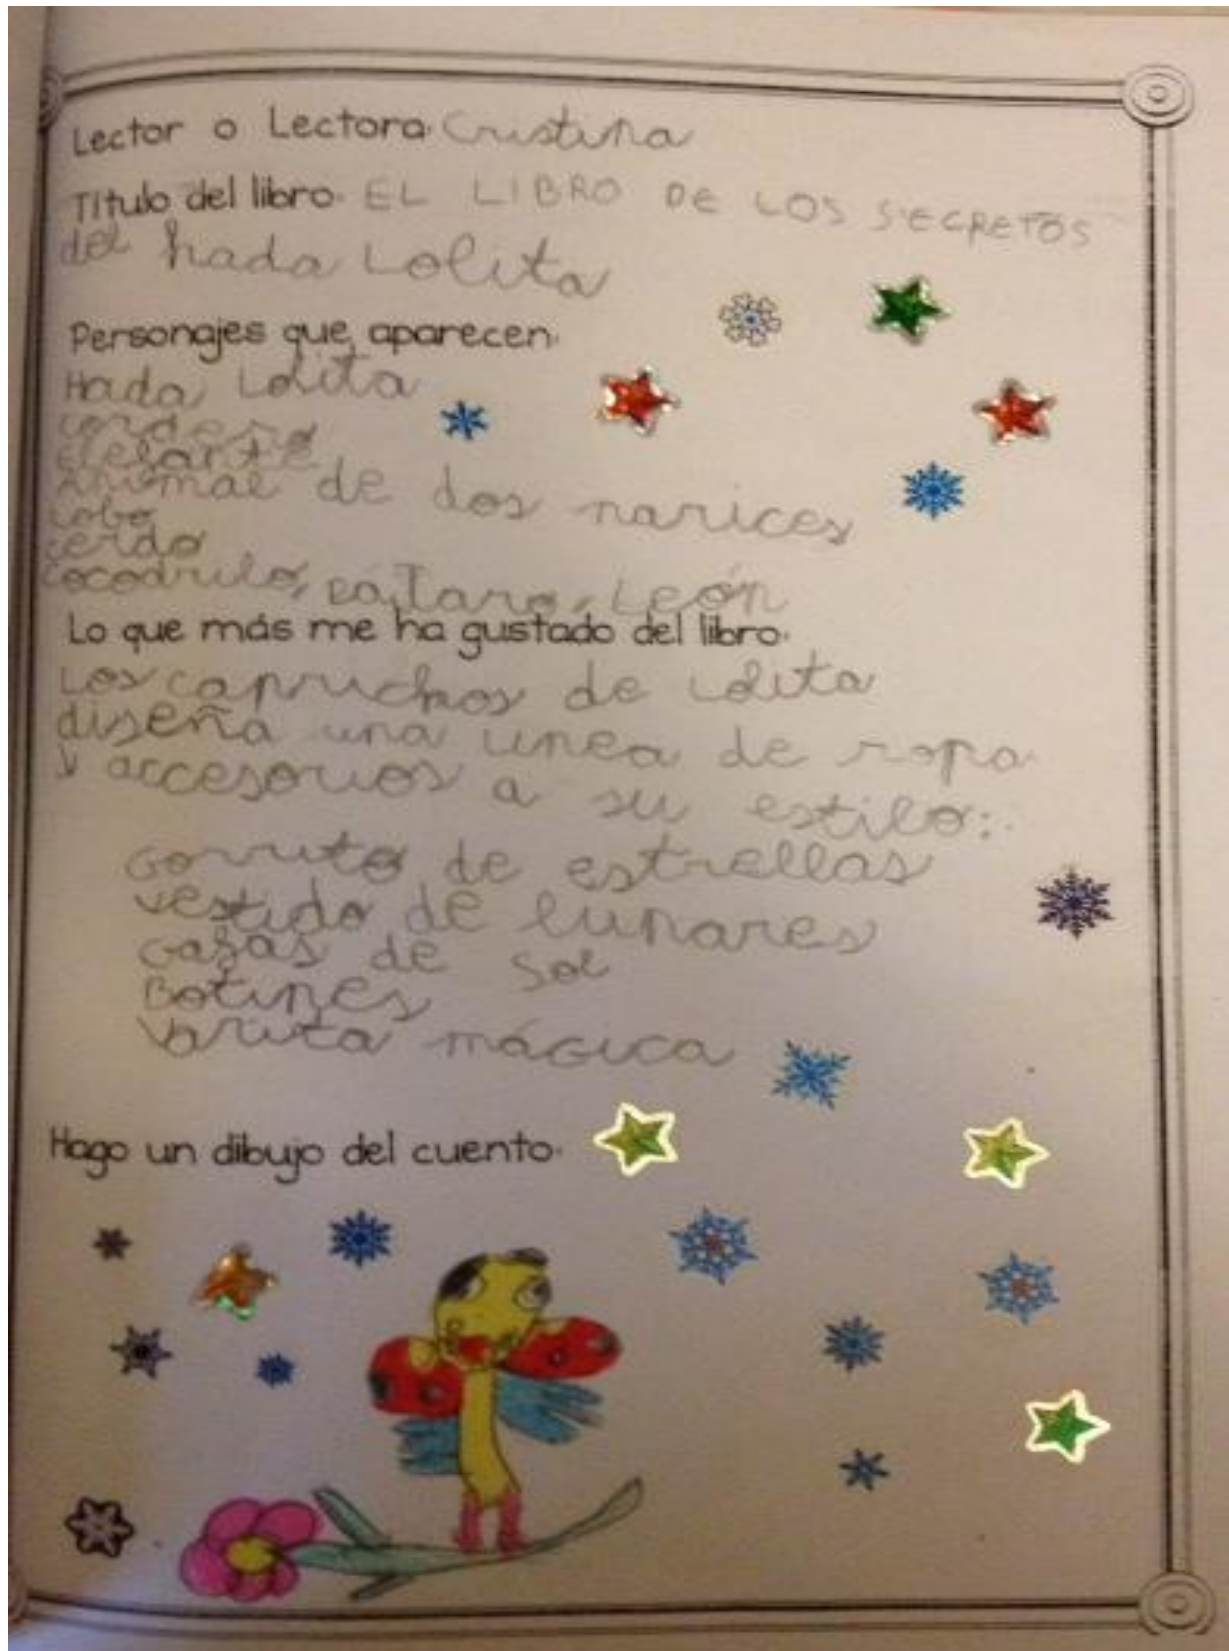 Lector o Lectora. Cristina
Título del libro. EL LIBRO DE LOS SECRETOS
del hada Lolita
Personajes que aparecen.
Hada Lolita
cordero
elefante
Animal de dos narices
Lobo
cerdo
cocodrilo, pájaro, León
Lo que más me ha gustado del libro.
Los caprichos de Lolita
diseña una linea de ropa
y accesorios a su estilo:
Gorrito de estrellas
vestido de lunares
Gafas de sol
Botines
Varita mágica
Hago un dibujo del cuento.